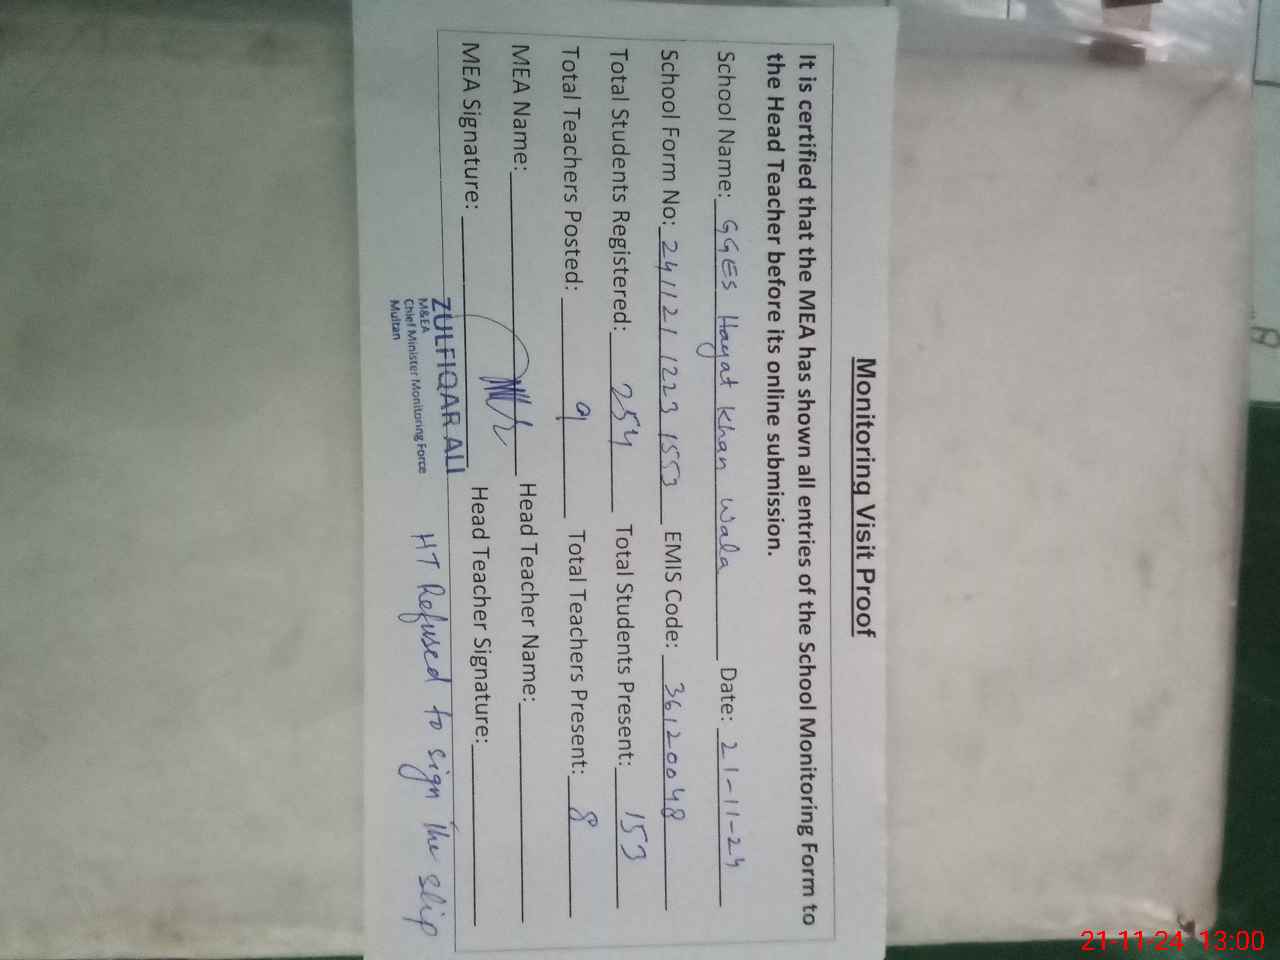 Monitoring Visit Proof
It is certified that the MEA has shown all entries of the School Monitoring Form to
the Head Teacher before its online submission.
School Name: GGES Hayat Khan Wala Date: 21-11-24
School Form No: 241121 1223 1553 EMIS Code: 36120048
Total Students Registered: 254 Total Students Present: 153
Total Teachers Posted: 9 Total Teachers Present: 8
MEA Name: Head Teacher Name:
MEA Signature: Head Teacher Signature:
ZULFIQAR ALI
M&EA
Chief Minister Monitoring Force
Multan
HT Refused to sign the slip
21-11-24 13:00